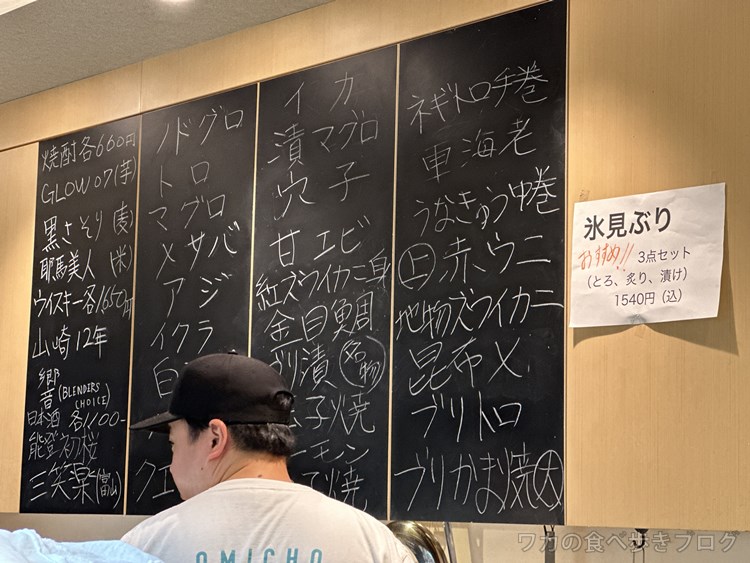 焼酎各660円
GLOW07(芋)
黒さそり(麦)
耶馬美人(米)
ウイスキー各1650円
山崎12年
響(BLENDERS CHOICE)
日本酒 各1100-
能登初桜
三笑楽(富山)
ノドグロ
トロ
マグロ
〆サバ
アジ
イクラ
白
クエ
イカ
漬マグロ
穴子
甘エビ
紅ズワイカニ身
金目鯛
ブリ漬(名物)
子焼
ーモン
子焼
ネギトロ手巻
車海老
うなきゅう中巻
(上)赤ウニ
地物ズワイカニ
昆布〆
ブリトロ
ブリかま焼(大)
氷見ぶり
おすすめ!! 3点セット
(とろ、炙り、漬け)
1540円(込)
OMICHO
ワカの食べ歩きブログ